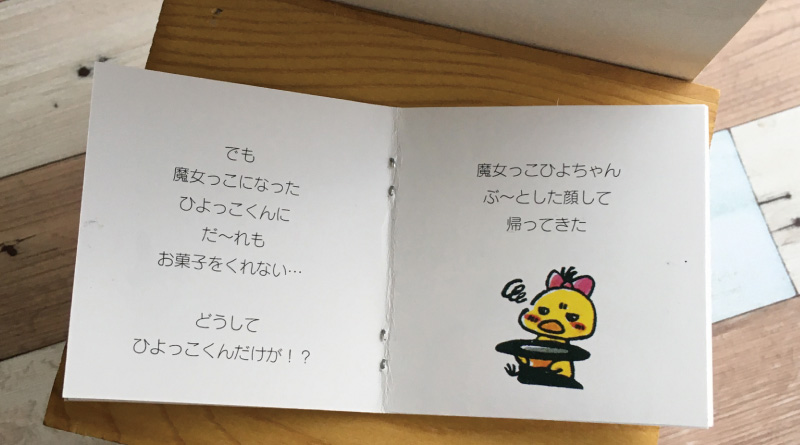 でも
魔女っこになった
ひよっこくんに
だ〜れも
お菓子をくれない…
どうして
ひよっこくんだけが！？
魔女っこひよちゃん
ぷ〜とした顔して
帰ってきた